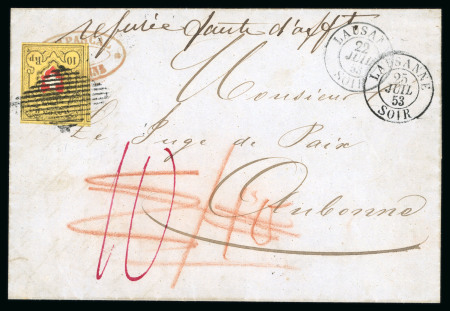 refusée faute d'afft
10 Rp.
LAUSANNE
22
JUIL
53
SOIR
LAUSANNE
25
JUIL
53
SOIR
Monsieur
Le Juge de Paix
Aubonne
10